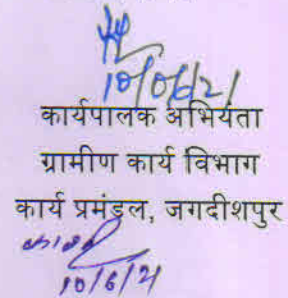 10/06/21
कार्यपालक अभियंता
ग्रामीण कार्य विभाग
कार्य प्रमंडल, जगदीशपुर
10/6/21